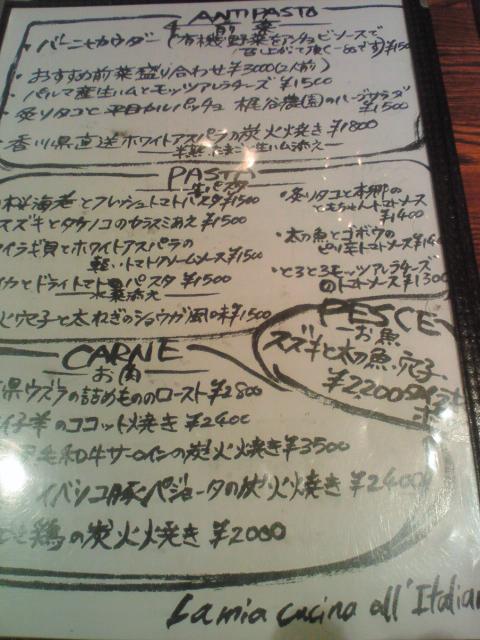 ANTIPASTO
前菜
・バーニャカウダー(有機野菜をアンチョビソースで
召し上がって頂く一品です)¥150
・おすすめ前菜盛り合わせ¥3000(2人前)
・パルマ産生ハムとモッツアレラチーズ ¥1500
・炙りタコと平目カルパッチョ 梶谷農園のハーブサラダ
¥1500
・香川県直送ホワイトアスパラの炭火焼き¥1800
生ハム添え
PASTA
桜海老とフレッシュトマトパスタ¥1500
スズキとタケノコのカラスミあえ ¥1500
イラギ貝とホワイトアスパラの
軽いトマトクリームソース¥1500
イカとドライトマトのパスタ ¥1500
水菜添え
穴子と太ねぎのショウガ風味¥1500
・炙りタコと本郷の
ともちゃんトマトソース
¥1400
・太刀魚とゴボウの
ピリ辛トマトソース¥14
・とろとろモッツアレラチーズ
のトマトソース¥1300
PESCE
お魚
スズキと太刀魚、穴子
¥2,200
CARNE
お肉
県ウズラの詰めもののロースト¥2800
仔羊のココット焼き ¥2400
毛和牛サーロインの炭火焼き¥3500
イベリコ豚の炭火焼き ¥2400
鶏の炭火焼き ¥2000
La mia cucina all'Italian